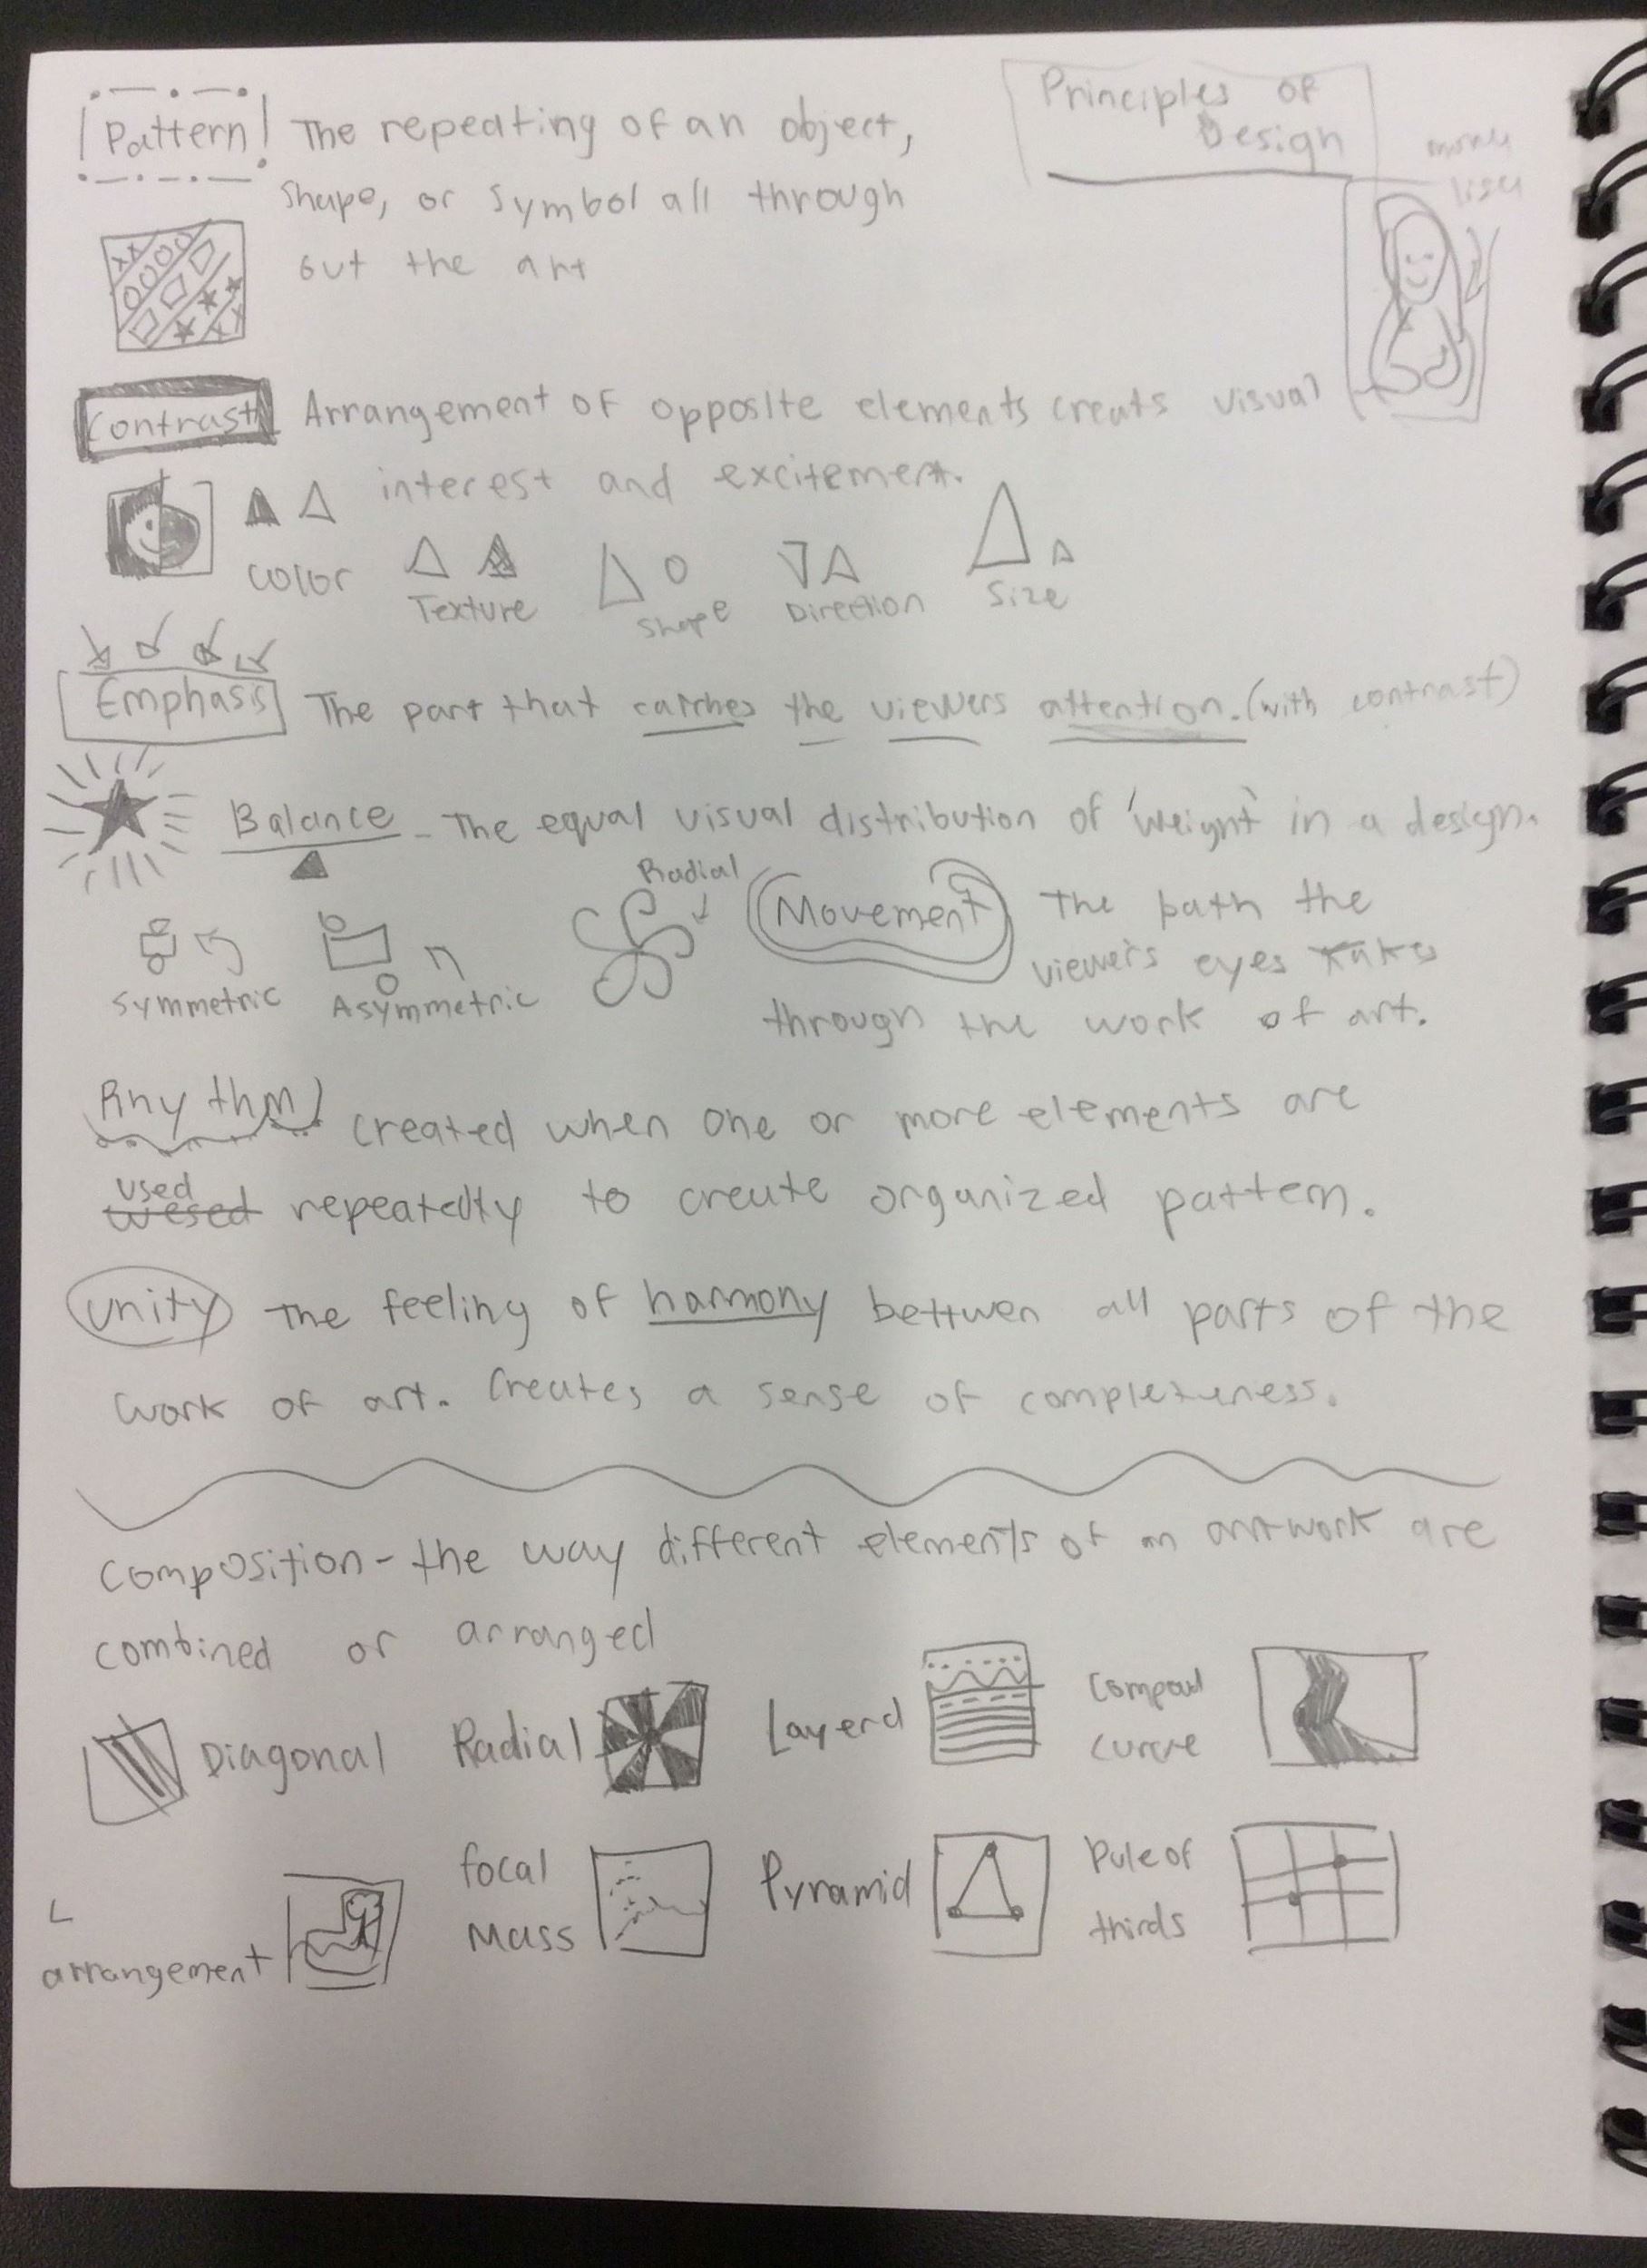 Principles of
Design
mona
lisa
Pattern The repeating of an object,
shape, or symbol all through
out the art
Contrast Arrangement of opposite elements creats visual
interest and excitement.
color
Texture
shape
Direction
Size
Emphasis The part that catches the viewers attention. (with contrast)
Balance - The equal visual distribution of 'weight' in a design.
Symmetric
Asymmetric
Radial
Movement The path the
viewers eyes take
through the work of art.
Rhythm created when one or more elements are
used wesed repeatedly to create organized pattern.
Unity The feeling of harmony bettwen all parts of the
work of art. Creates a sense of completeness.
Composition - the way different elements of an artwork are
combined or arranged
Diagonal
Radial
Layerd
curve
L
arrangement
focal
Mass
Pyramid
Rule of
thirds